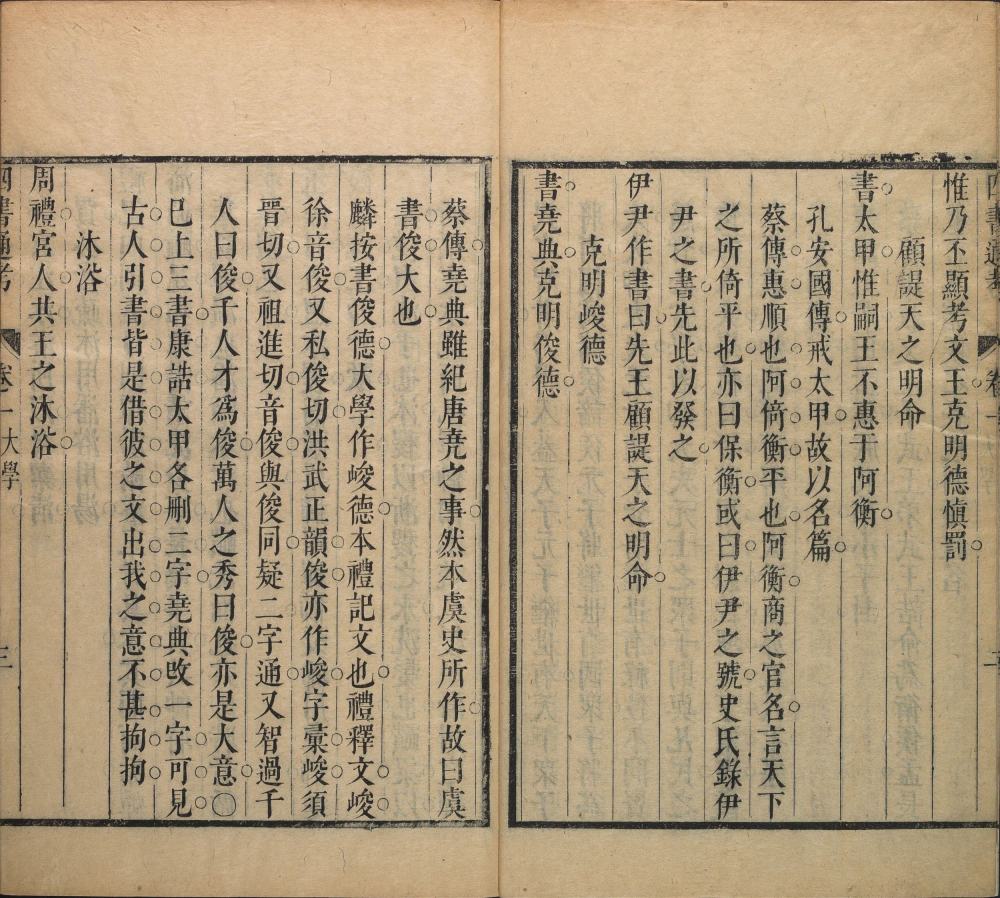 四書通考 卷一
惟乃丕顯考文王克明德愼罰
顧諟天之明命
書太甲惟嗣王不惠于阿衡
孔安國傳戒太甲故以名篇
蔡傳惠順也阿倚衡平也阿衡商之官名言天下
之所倚平也亦曰保衡或曰伊尹之號史氏錄伊
尹之書先此以發之
伊尹作書曰先王顧諟天之明命
克明峻德
書堯典克明俊德
蔡傳堯典雖紀唐堯之事然本虞史所作故曰虞
書俊大也
麟按書俊德大學作峻德本禮記文也禮釋文峻
徐音俊又私俊切洪武正韻俊亦作峻字彙峻須
晉切又祖進切音俊與俊同疑二字通又智過千
人曰俊千人才爲俊萬人之秀曰俊亦是大意〇
巳上三書康誥太甲各刪二字堯典改一字可見
古人引書皆是借彼之文出我之意不甚拘拘
沐浴
周禮宮人共王之沐浴
四書通考 卷一大學 三